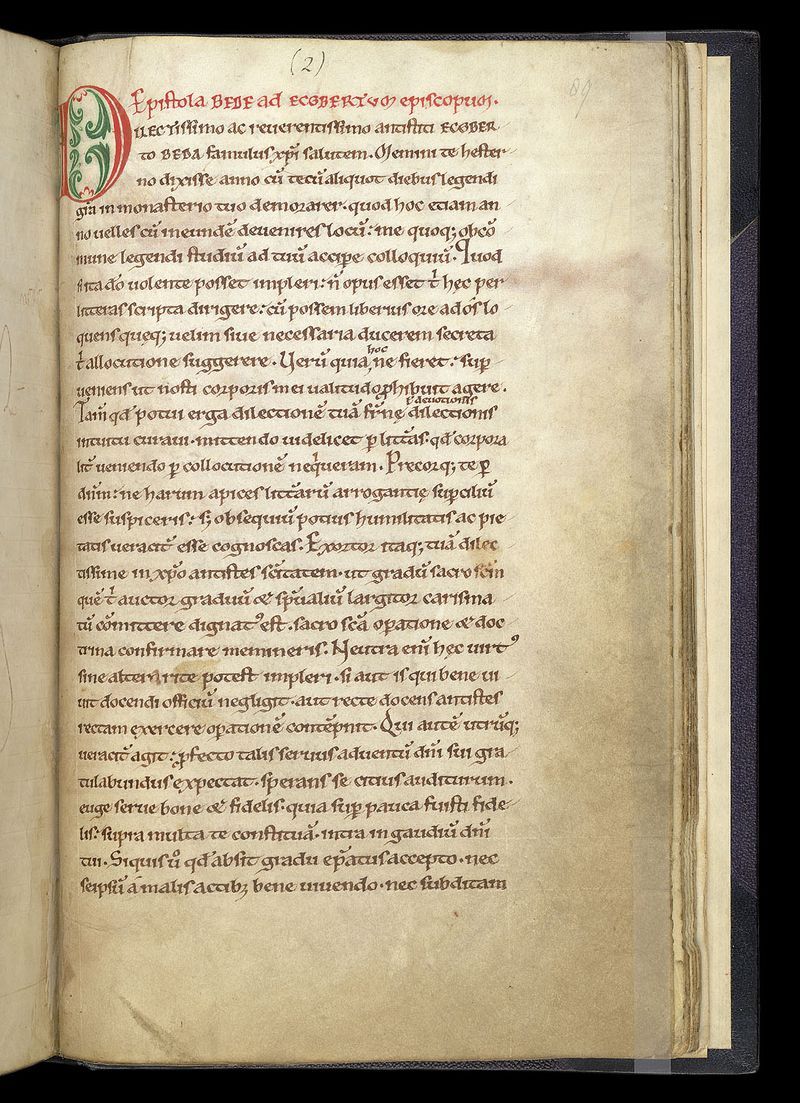 (2)
89
Epistola BEDE ad ECGBERTUM episcopum.
DILECTISSIMO ac reuerentissimo antistiti ECGBER
to BEDA famulus xp̄i salutem. Memini te hester
no dixisse anno cū tecū aliquot diebus legendi
gr̄a in monasterio tuo demorarer. quod hoc etiam an
no uelles cū in eundē deuenires locū: me quoq; ob cō
mune legendi studiū ad tuū accipe colloquiū. Quod
si ita dō uolente posset impleri: n̄ opus esset t̄ hęc per
litteras scripta dirigere: cū possem liberius ore ad os lo
quens quęq; uelim siue necessaria ducerem secreta
t̄ allocutione suggerere. Uerū quia hoc ne fieret: sup̄
ueniens ut nosti corporis mei ualitudo ꝓhibuit agere.
Tam̄ qd̄ potui erga dilectionē tuā fr̄nę dilectionis ł deuotionis
intuitu curaui. mittendo uidelicet ꝑ litt̄as. qd̄ corpora
lit̄ ueniendo ꝑ collocutionē neq̄ueram. Precorq; te ꝑ
dn̄m: ne harum apices litt̄arū arrogantię sup̄ciliū
esse suspiceris: s; obsequiū potius humilitatis ac pie
tatis ueracit̄ esse cognoscas. Exortor itaq; tuā dilec
tissime in xp̄o antistes sc̄itatem. ut gradū sacro scm̄
quē t̄ auctor graduū & sp̄ualiū largitor carisma
tū cōmittere dignatꝰ est. sacro sc̄a oꝑatione & doc
trina confirmare memineris. Neutra eni hęc uirtꝰ
sine altera rite potest impleri. si aut is qui bene ui
uit docendi officiū negligit. aut recte docens antistes
rectam exercere oꝑationē contēpnit. Qui autē utrūq;
ueracit̄ agit: ꝓfecto talis seruus aduentū dn̄i sui gra
tulabundus expectat. sperans se citius auditurum.
euge serue bone & fidelis. quia sup̄ pauca fuisti fide
lis: supra multa te constituā. intra in gaudiū dn̄i
tui. Siquis ū qd̄ absit gradu ep̄atus accepto. nec
seipsū a malis actibꝫ bene uiuendo. nec subditam